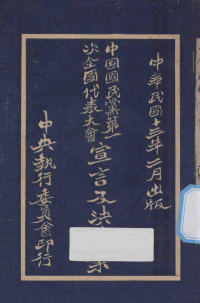 中華民國十三年二月出版
中国國民黨第一
次全國代表大會
宣言及決
中央執行委員會印行